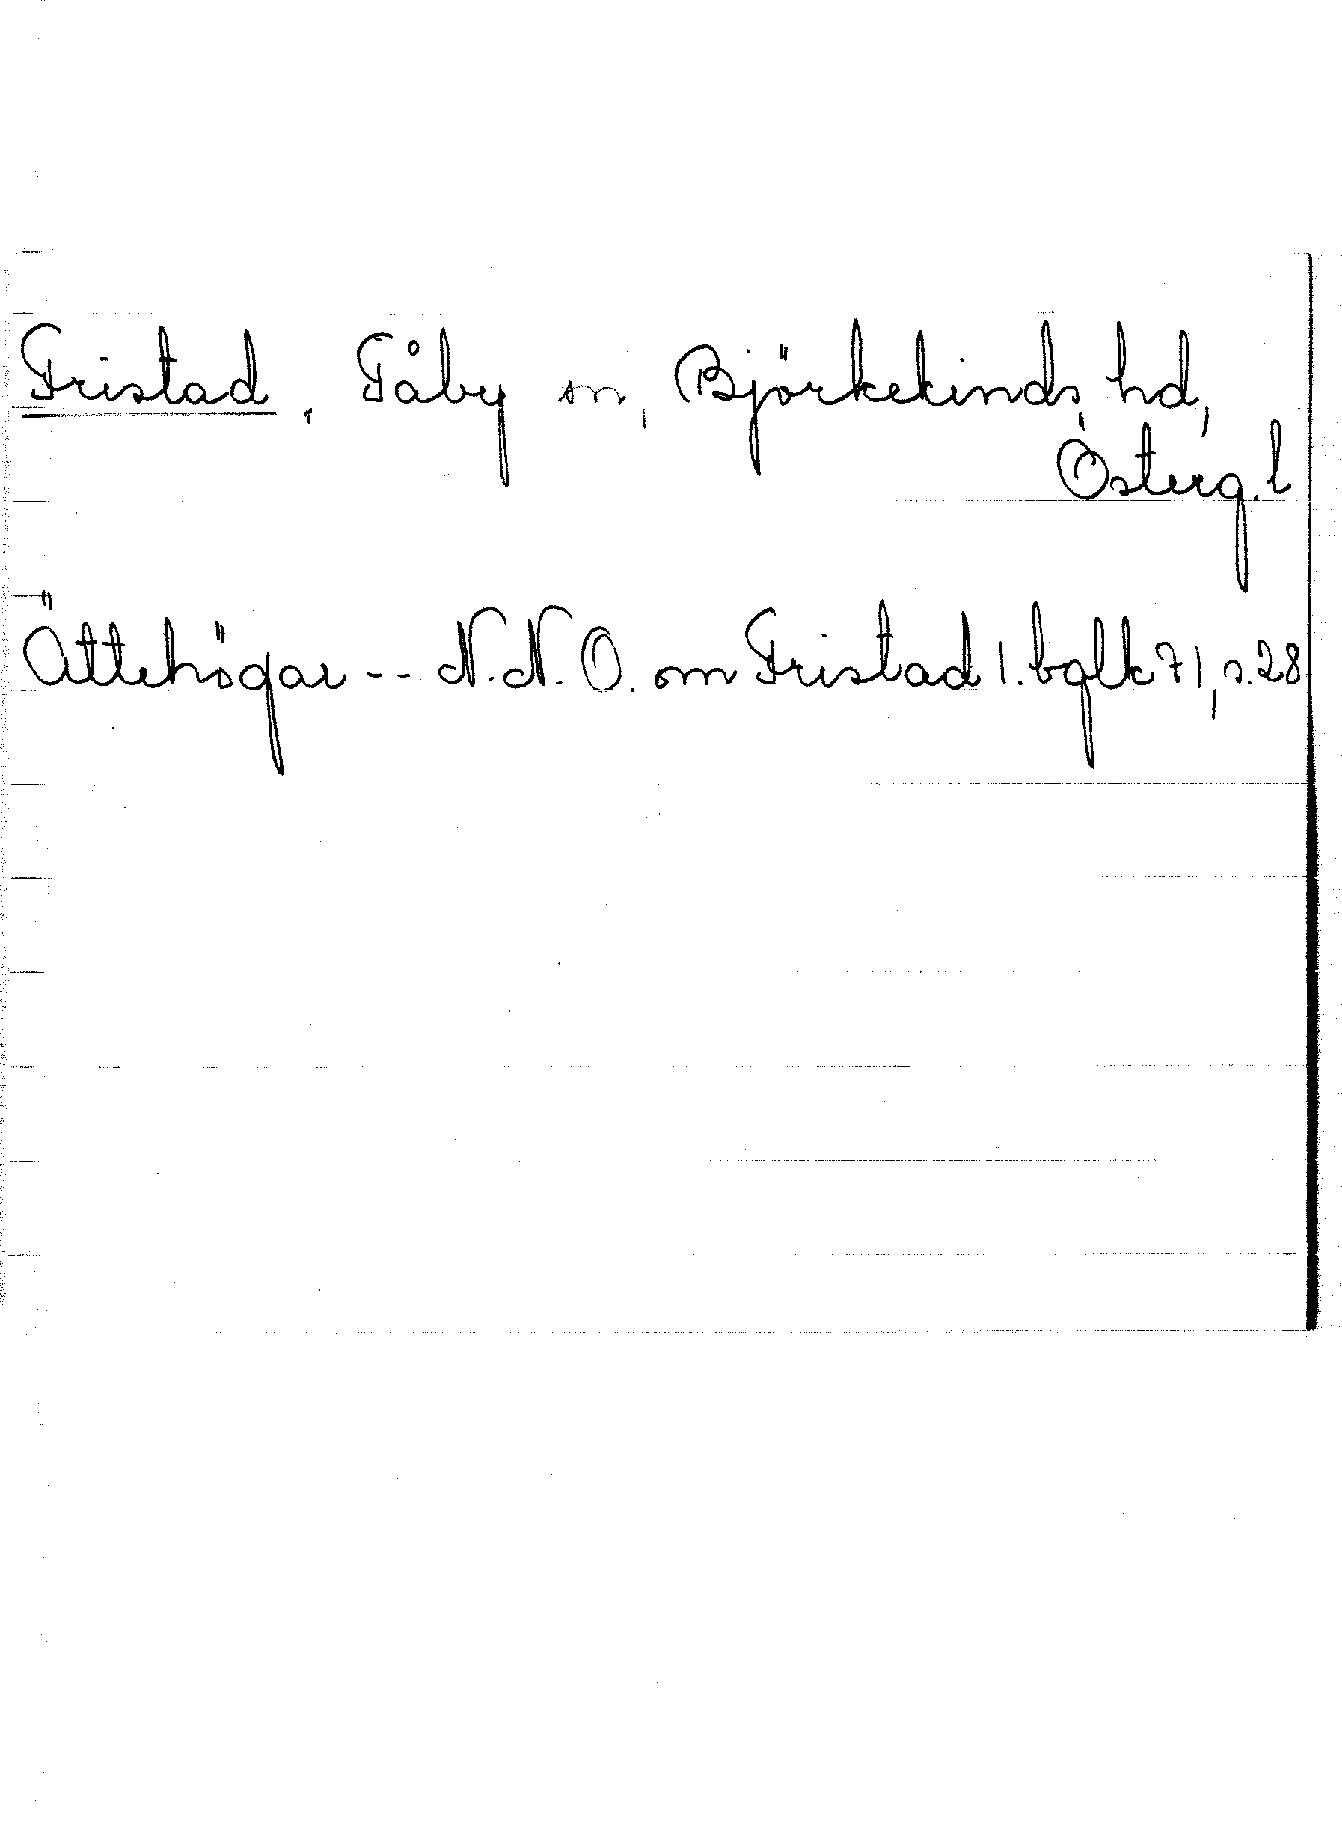 Fristad, Tåby sn, Björkekinds hd,
Österg. l
Ättehögar -- N.N.O. om Fristad 1. bglk 71, s. 28